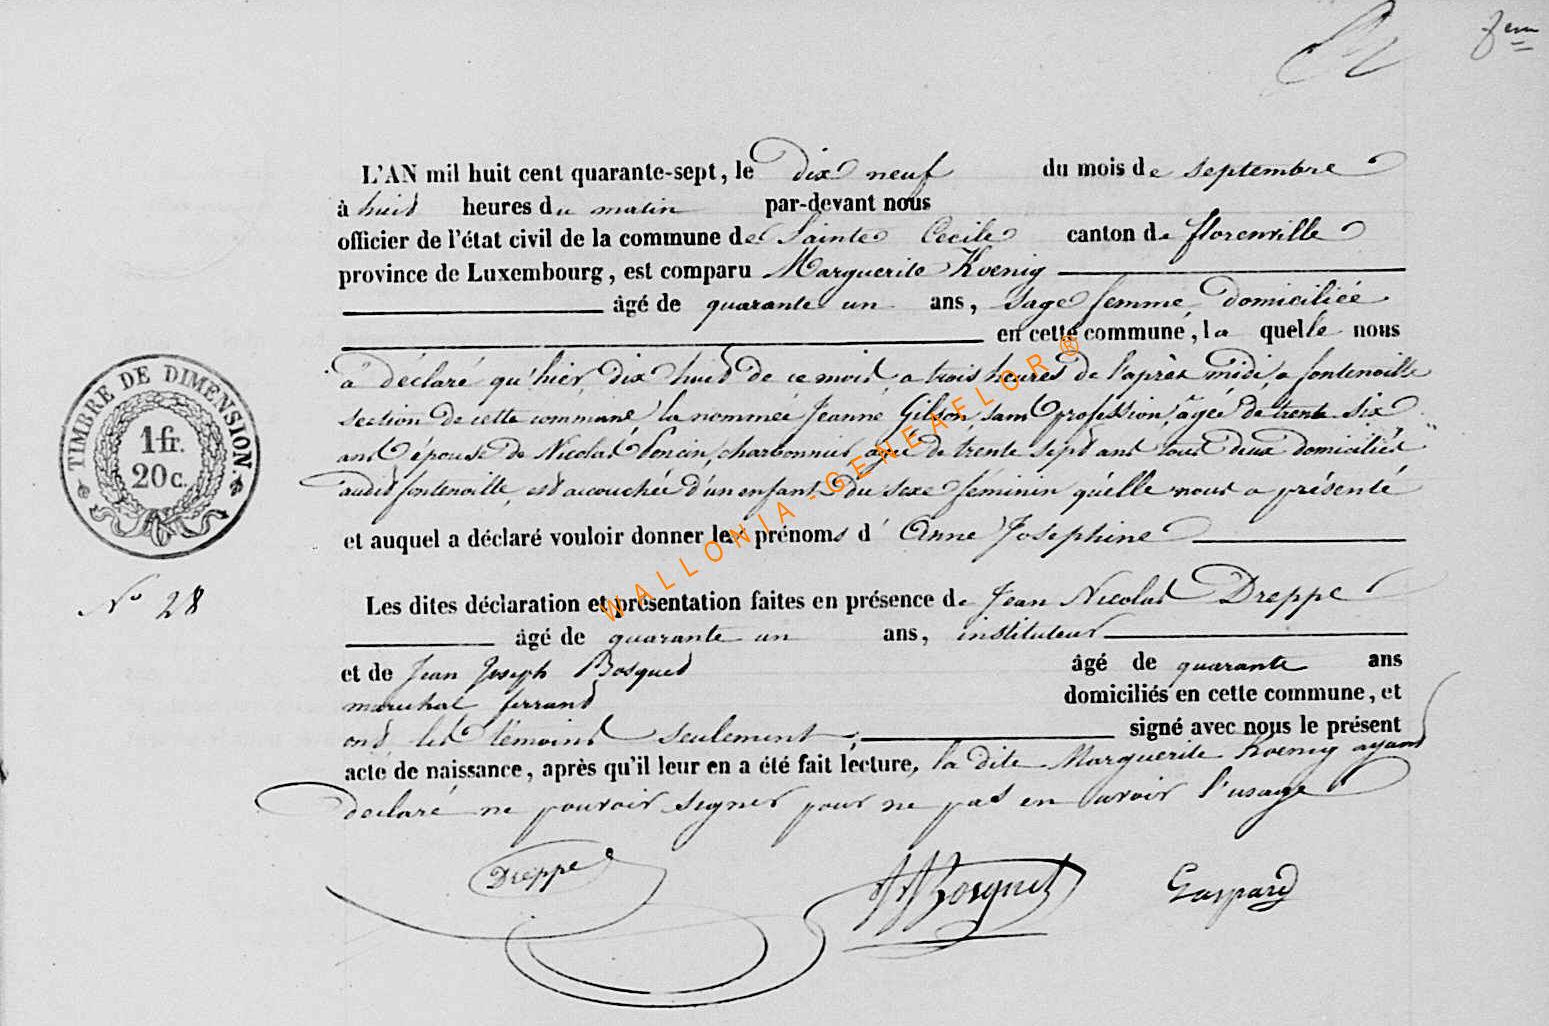 8em
L'AN mil huit cent quarante-sept, le dix neuf du mois de septembre
à huit heures du matin par-devant nous
officier de l'état civil de la commune de Sainte Cecile canton de florenville
province de Luxembourg, est comparu Marguerite Koenig
âgé de quarante un ans, sage femme domiciliée
en cette commune, la quelle nous
a déclaré qu'hier dix huit de ce mois, a trois heures de l'après midi, a fontenoille
section de cette commune la nommée Jeanne Gilson, sans profession, agée de trente six
ans épouse de Nicolas Poncin, charbonnier agé de trente sept ans tous deux domiciliés
audit fontenoille, est accouchée d'un enfant du sexe féminin qu'elle nous a présenté
et auquel a déclaré vouloir donner les prénoms d' Anne Josephine
Les dites déclaration et présentation faites en présence de Jean Nicolas Dreppe
âgé de quarante un ans, instituteur
et de Jean Joseph Bosquet âgé de quarante ans
marechal ferrant domiciliés en cette commune, et
ont les témoins seulement, signé avec nous le présent
acte de naissance, après qu'il leur en a été fait lecture, la dite Marguerite Koenig ayant
declaré ne pouvoir signer pour ne pas en avoir l'usage
Dreppe JJBosquet Gaspard
TIMBRE DE DIMENSION.
1 fr.
20 c.
No 28
WALLONIA-GENEAFLOR®